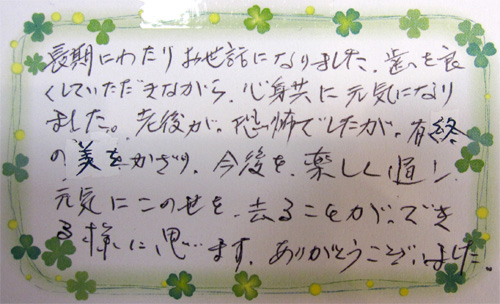 長期にわたりお世話になりました。歯を良
くしていただきながら、心身共に元気になり
ました。老後が、恐怖でしたが、有終
の美をかざり、今後を、楽しく過し
元気にこの世を、去ることが、でき
る様に思います。ありがとうございました。